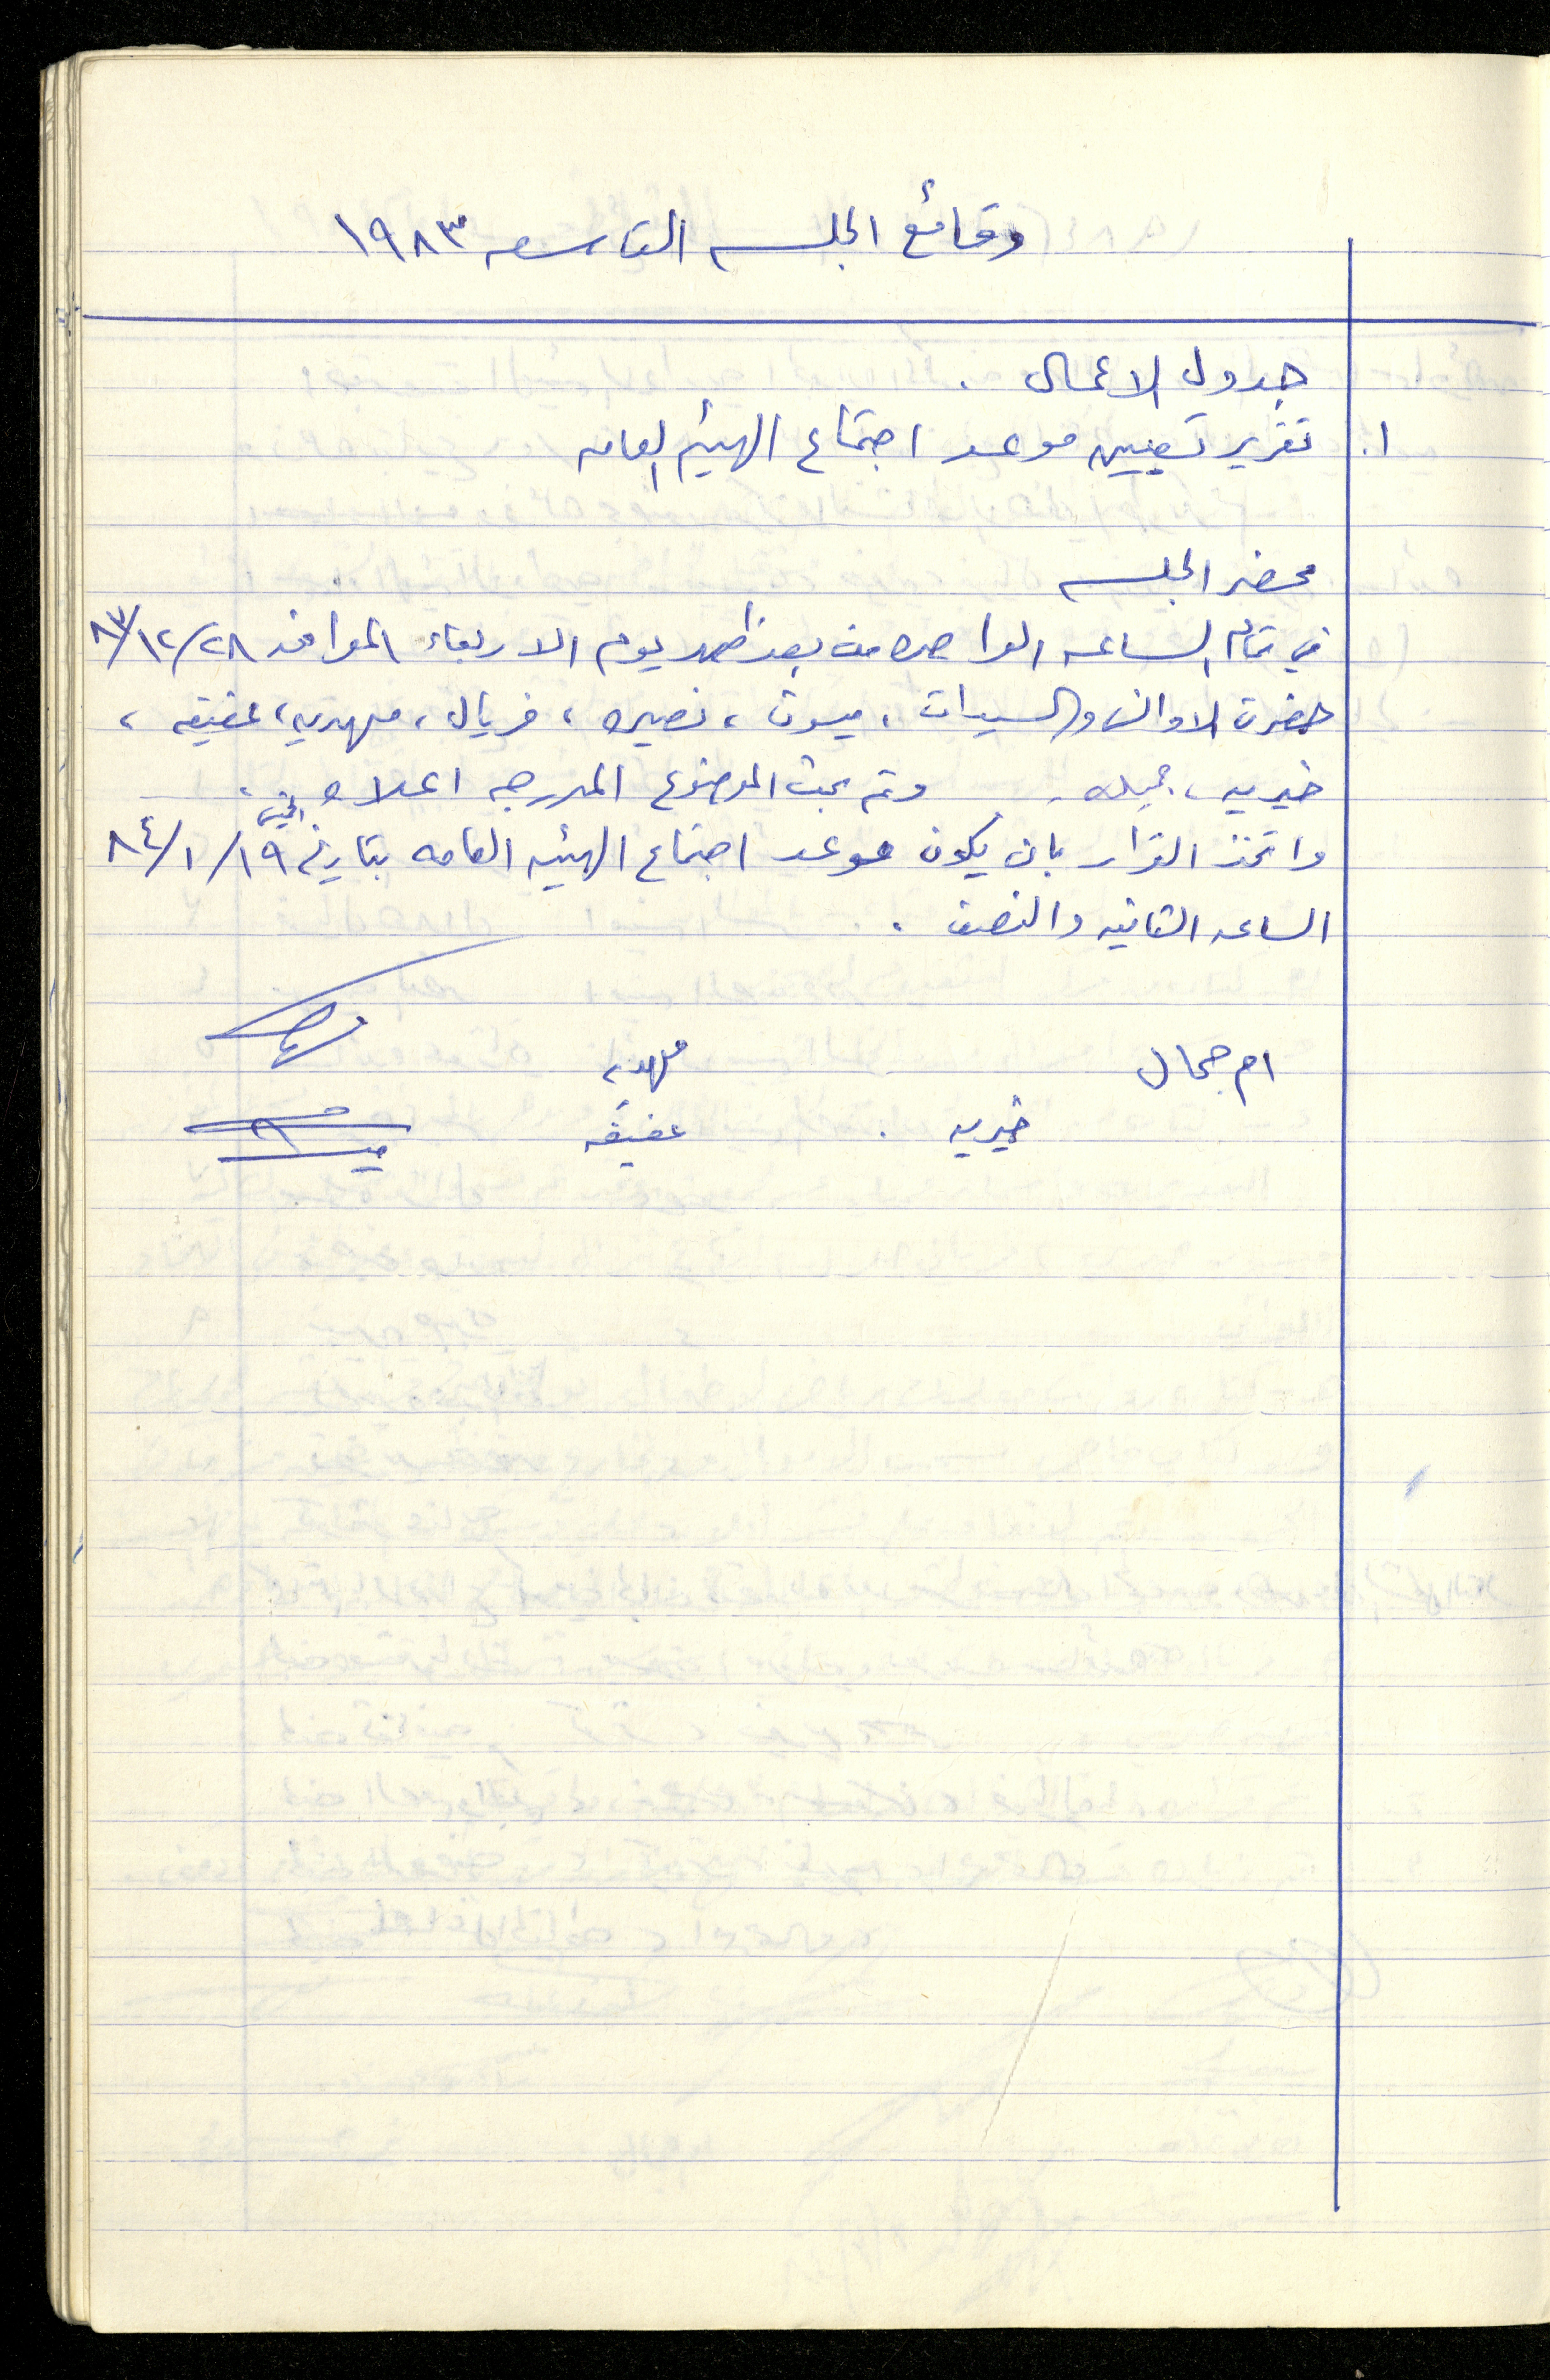 وقائع الجلسه التاسعه ١٩٨٣
جدول الاعمال .
١. تقرير تعيين موعد اجتماع الهيئه العامه
محضر الجلسه
في تمام الساعه الواحده من بعد ظهر يوم الاربعاء الموافق ٨٣/١٢/٢٨
حضرت الاوانس والسيدات ، ميسون ، نصيره ، فريال ، مهديه ، عفيفه ،
خيريه ، جميله . وتم بحث الموضوع المدرجه اعلاه .
واتخذ القرار بان يكون موعد اجتماع الهيئه العامه بتاريخ الخميس ٨٤/١/١٩
الساعه الثانيه والنصف .
ام جمال مهديه
خيريه . عفيفه